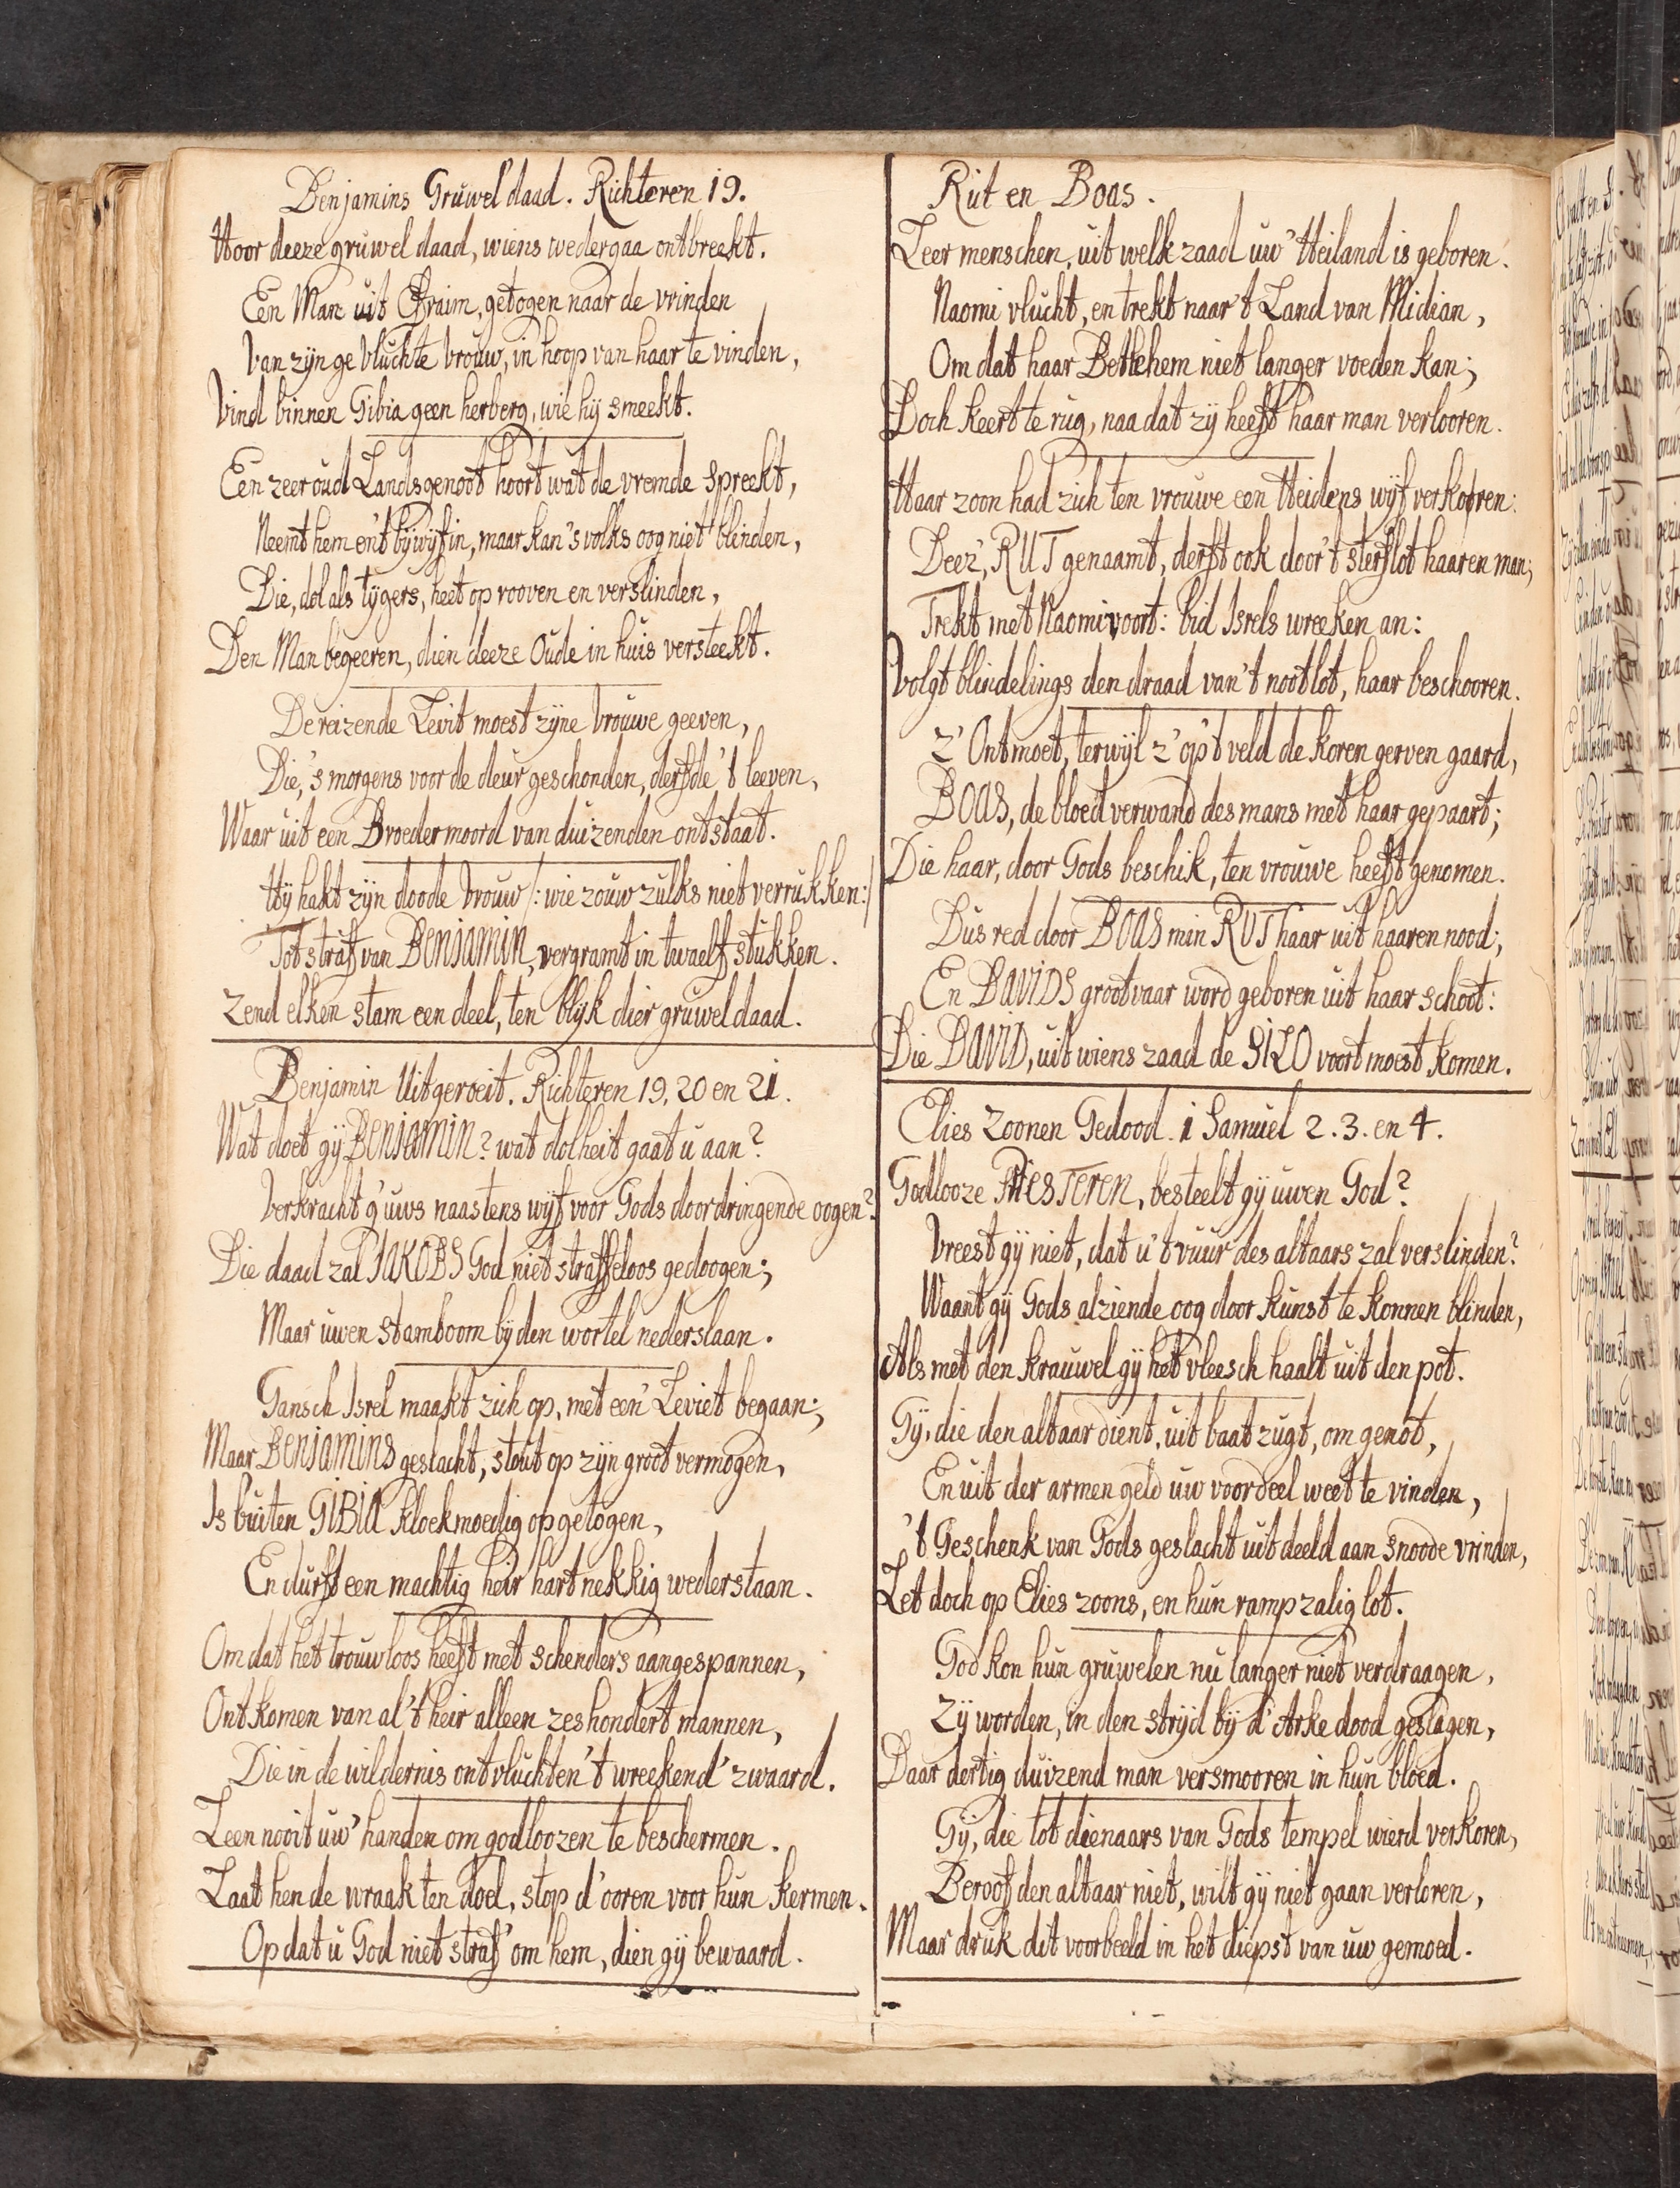 Benjamins Gruwel daad. Richteren 19.
Hoor deeze gruwel daad, wiens wedergaa ontbreekt.
Een Man uit Efraim, getogen naar de vrinden
Van zijn gevluchte vrouw, in hoop van haar te vinden,
Vind binnen Gibia geen herberg, wie hij smeekt.
Een zeer oud Landsgenoot hoort wat de vremde spreekt,
Neemt hem en 't bijwijf in, maar kan 's volks oog niet blinden,
Die, dol als tijgers, heet op rooven en verslinden,
Den Man begeeren, dien deeze Oude in huis versteekt.
De reizende Levit moest zijne vrouwe geeven,
Die, 's morgens voor de deur geschonden, derfde 't leeven,
Waar uit een Broedermoord van duizenden ontstaat.
Hij hakt zijn doode vrouw /: wie zouw zulks niet verrukken:/
Tot straf van BENJAMIN, vergramt in twaelf stukken.
Zend elken stam een deel, ten blijk dier gruwel daad.
Benjamin Uitgeroeit. Richteren 19, 20 en 21.
Wat doet gij BENJAMIN? wat dolheit gaat u aan?
Verkracht g' uws naastens wijf voor Gods doordringende oogen?
Die daad zal JAKOBS God niet straffeloos gedoogen;
Maar uwen stamboom bij den wortel nederslaan.
Gansch Isrel maakt zich op, met een' Leviet begaan;
Maar BENJAMINS geslacht, stout op zijn groot vermogen,
Is buiten GIBIA kloekmoedig opgetogen,
En durft een machtig heir hartnekkig wederstaan.
Om dat het trouwloos heeft met schenders aangespannen,
Ontkomen van al 't heir alleen zeshondert mannen,
Die in de wildernis ontvluchten 't wreekend' zwaard.
Leen nooit uw' handen om godloozen te beschermen.
Laat hen de wraak ten doel, stop d' ooren voor hun kermen.
Op dat u God niet straf' om hem, dien gij bewaard.
Rut en Boas.
Leer menschen, uit welk zaad uw' Heiland is geboren.
Naomi vlucht, en trekt naar 't Land van Midian,
Om dat haar Betlehem niet langer voeden kan;
Doch keert te rug, naa dat zij heeft haar man verlooren.
Haar zoon had zich ten vrouwe een Heidens wijf verkooren:
Deez', RUT genaamt, derft ook door 't sterflot haaren man;
Trekt met Naomi voort: bid Isrels wreeken an:
Volgt blindelings den draad van 't nootlot, haar beschooren.
Z' Ontmoet, terwijl z' op 't veld de koren gerven gaard,
BOAS, de bloedverwand des mans met haar gepaart;
Die haar, door Gods beschik, ten vrouwe heeft genomen.
Dus red door BOAS min RUT haar uit haaren nood;
En DAVIDS grootvaar word geboren uit haar schoot:
Die DAVID, uit wiens zaad de SILO voort moest komen.
Elies Zoonen Gedood. 1 Samuel 2. 3. en 4.
Godlooze PRIESTEREN, besteelt gij uwen God?
Vreest gij niet, dat u 't vuur des altaars zal verslinden?
Waant gij Gods alziende oog door kunst te konnen blinden,
Als met den krauwel gij het vleesch haalt uit den pot.
Gij, die den altaar dient, uit baatzugt, om genot,
En uit der armen geld uw voordeel weet te vinden,
't Geschenk van Gods geslacht uitdeeld aan snoode vrinden,
Let doch op Elies zoons, en hun rampzalig lot.
God kon hun gruwelen nu langer niet verdraagen,
Zij worden, in den strijd bij d' Arke dood geslagen,
Daar dertig duizend man versmooren in hun bloed.
Gij, die tot dienaars van Gods tempel wierd verkoren,
Beroof den altaar niet, wilt gij niet gaan verloren,
Maar druk dit voorbeeld in het diepst van uw gemoed.